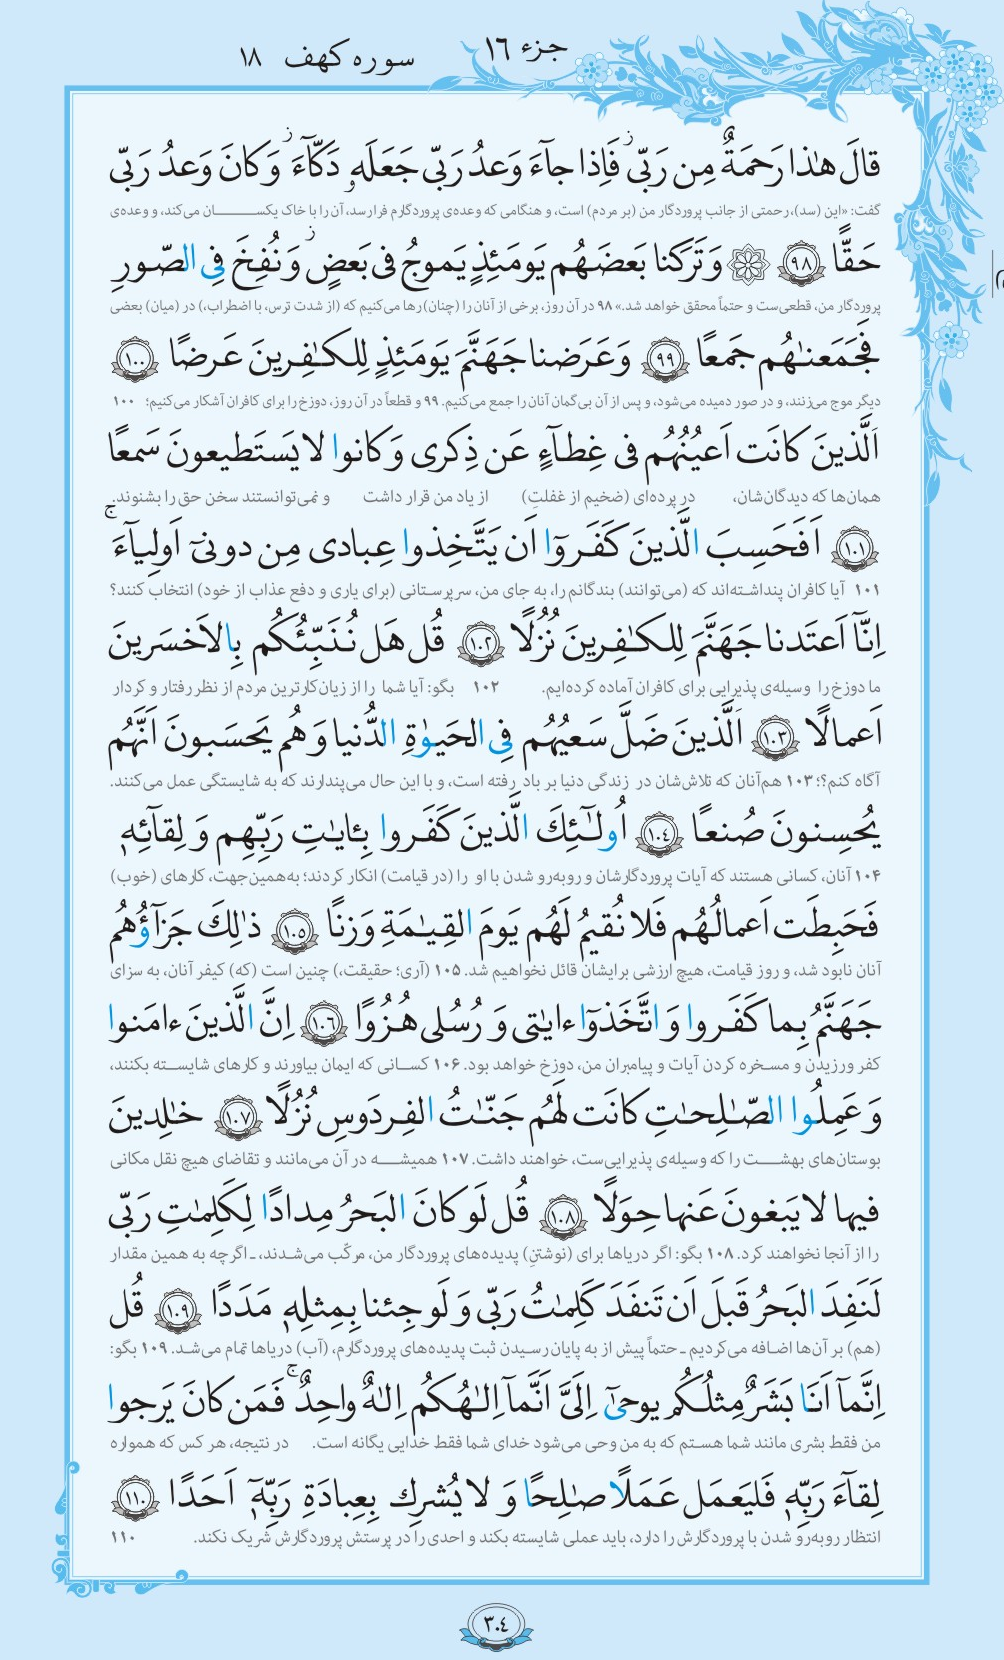 جزء ١٦
سوره کهف ١٨
قالَ هٰذا رَحمَةٌ مِن رَبّی ۖ فَاِذا جآءَ وَعدُ رَبّی جَعَلَهٗ دَکّآءَ ۖ وَ کانَ وَعدُ رَبّی
گفت: «این (سد)، رحمتی از جانب پروردگار من (بر مردم) است، و هنگامی که وعده‌ی پروردگارم فرارسد، آن را با خاک یکسان می‌کند، و وعده‌ی
حَقًّا ٩٨ وَ تَرَکنا بَعضَهُم یَومَئِذٍ یَموجُ فی بَعضٍ ۖ وَ نُفِخَ فِی الصّورِ
پروردگار من، قطعی‌ست و حتماً محقق خواهد شد.» ۹۸ در آن روز، برخی از آنان را (چنان) رها می‌کنیم که (از شدت ترس، با اضطراب،) در (میان) بعضی
فَجَمَعنـٰهُم جَمعًا ٩٩ وَ عَرَضنا جَهَنَّمَ یَومَئِذٍ لِلکـٰفِرینَ عَرضًا ١٠٠
دیگر موج می‌زنند، و در صور دمیده می‌شود، و پس از آن بی‌گمان آنان را جمع می‌کنیم. ۹۹ و قطعاً در آن روز، دوزخ را برای کافران آشکار می‌کنیم؛ ۱۰۰
اَلَّذینَ کانَت اَعیُنُهُم فی غِطـآءٍ عَن ذِکری وَ کانوا لا یَستَطیعونَ سَمعًا
همان‌ها که دیدگان‌شان، در پرده‌ای (ضخیم از غفلتِ) از یاد من قرار داشت و نمی‌توانستند سخن حق را بشنوند.
١٠١ اَفَحَسِبَ الَّذینَ کَفَروٓا اَن یَتَّخِذوا عِبادی مِن دونیٓ اَولِیـآءَ ۚ
۱۰۱ آیا کافران پنداشته‌اند که (می‌توانند) بندگانم را، به جای من، سرپرستانی (برای یاری و دفع عذاب از خود) انتخاب کنند؟
اِنّآ اَعتَدنا جَهَنَّمَ لِلکـٰفِرینَ نُزُلًا ١٠٢ قُل هَل نُنَبِّئُکُم بِالاَخسَرینَ
ما دوزخ را وسیله‌ی پذیرایی برای کافران آماده کرده‌ایم. ۱۰۲ بگو: آیا شما را از زیان‌کارترین مردم از نظر رفتار و کردار
اَعمالًا ١٠٣ اَلَّذینَ ضَلَّ سَعیُهُم فِی الحَیوٰةِ الدُّنیا وَ هُم یَحسَبونَ اَنَّهُم
آگاه کنم؟؛ ۱۰۳ هم‌آنان که تلاش‌شان در زندگی دنیا بر باد رفته است، و با این حال می‌پندارند که به شایستگی عمل می‌کنند.
یُحسِنونَ صُنعًا ١٠٤ اُولـٰٓئِکَ الَّذینَ کَفَروا بِـٔایـٰتِ رَبِّهِم وَ لِقآئِهٖ
۱۰۴ آنان، کسانی هستند که آیات پروردگارشان و روبه‌رو شدن با او را (در قیامت) انکار کردند؛ به‌همین‌جهت، کارهای (خوب)
فَحَبِطَت اَعمالُهُم فَلا نُقیمُ لَهُم یَومَ القِیـٰمَةِ وَزنًا ١٠٥ ذٰلِکَ جَزآؤُهُم
آنان نابود شد، و روز قیامت، هیچ ارزشی برایشان قائل نخواهیم شد. ۱۰۵ (آری؛ حقیقت،) چنین است (که) کیفر آنان، به سزای
جَهَنَّمُ بِما کَفَروا وَ اتَّخَذوٓا ءایـٰتی وَ رُسُلی هُزُوًا ١٠٦ اِنَّ الَّذینَ ءامَنوا
کفر ورزیدن و مسخره کردن آیات و پیامبران من، دوزخ خواهد بود. ۱۰۶ کسانی که ایمان بیاورند و کارهای شایسته بکنند،
وَ عَمِلُوا الصّـٰلِحـٰتِ کانَت لَهُم جَنّـٰتُ الفِردَوسِ نُزُلًا ١٠٧ خـٰلِدینَ
بوستان‌های بهشت را که وسیله‌ی پذیرایی‌ست، خواهند داشت. ۱۰۷ همیشه در آن می‌مانند و تقاضای هیچ نقل مکانی
فیها لا یَبغونَ عَنها حِوَلًا ١٠٨ قُل لَو کانَ البَحرُ مِدادًا لِکَلِمـٰتِ رَبّی
را از آنجا نخواهند کرد. ۱۰۸ بگو: اگر دریاها برای (نوشتنِ) پدیده‌های پروردگار من، مرکّب می‌شدند، ـ اگرچه به همین مقدار
لَنَفِدَ البَحرُ قَبلَ اَن تَنفَدَ کَلِمـٰتُ رَبّی وَ لَو جِئنا بِمِثلِهٖ مَدَدًا ١٠٩ قُل
(هم) بر آن‌ها اضافه می‌کردیم ـ حتماً پیش از به پایان رسیدن ثبت پدیده‌های پروردگارم، (آب) دریاها تمام می‌شد. ۱۰۹ بگو:
اِنَّمآ اَنَا بَشَرٌ مِثلُکُم یوحیٰٓ اِلَیَّ اَنَّمآ اِلـٰهُکُم اِلـٰهٌ واحِدٌ ۚ فَمَن کانَ یَرجوا
من فقط بشری مانند شما هستم که به من وحی می‌شود خدای شما فقط خدایی یگانه است. در نتیجه، هر کس که همواره
لِقآءَ رَبِّهٖ فَلیَعمَل عَمَلًا صـٰلِحًا وَ لا یُشرِک بِعِبادَةِ رَبِّهٖٓ اَحَدًا ١١٠
انتظار روبه‌رو شدن با پروردگارش را دارد، باید عملی شایسته بکند و احدی را در پرستش پروردگارش شریک نکند. ۱۱۰
٣٠٤